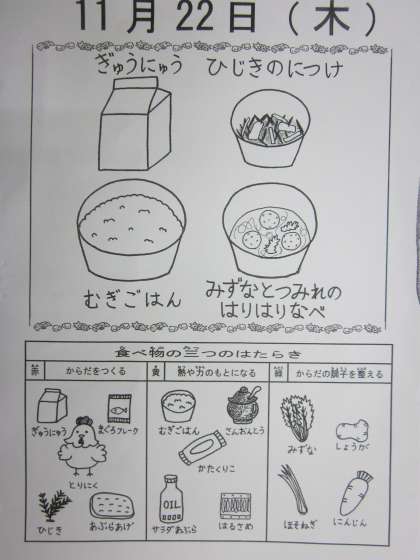 11月22日(木)
ぎゅうにゅう
ひじきのにつけ
むぎごはん
みずなとつみれの
はりはりなべ
食べ物の三つのはたらき
赤
からだをつくる
黄
熱や力のもとになる
緑
からだの調子を整える
ぎゅうにゅう
まぐろフレーク
とりにく
ひじき
あぶらあげ
むぎごはん
さんおんとう
かたくりこ
OIL
サラダあぶら
はるさめ
みずな
しょうが
ほそねぎ
にんじん